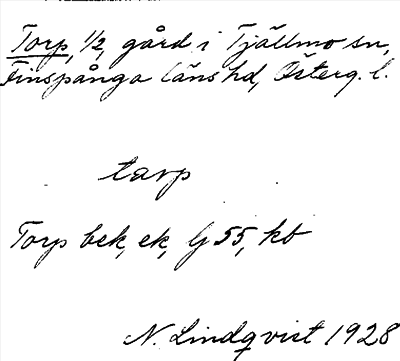 Torp, 1/2, gård i Tjällmo sn,
Finspånga läns hd, Österg. l.
tarp
Torp bek, ek, lj 55, kb
N. Lindqvist 1928